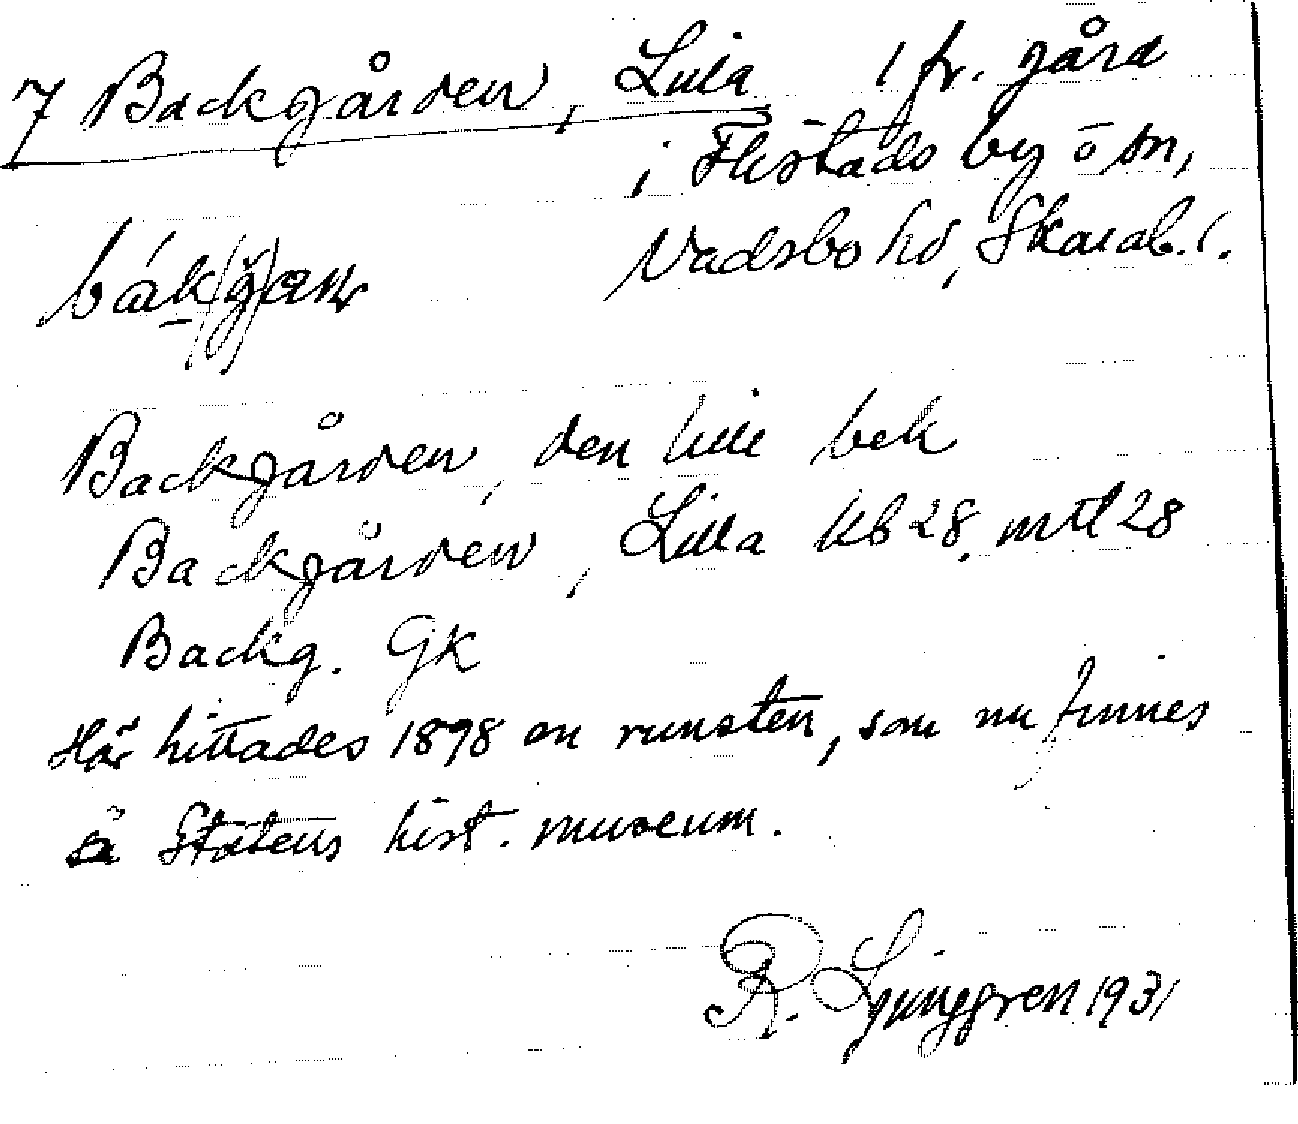 7 Backgården, Lilla 1 fr. gård
i Flistads by o sn,
Vadsbo hd, Skarab. l.
Backgården, den lille bek
Backgården, Lilla kb 28. mtl 28
Backg. GK
Här hittades 1898 en runsten, som nu finnes
å Statens hist. museum.
R. Ljunggren 1931